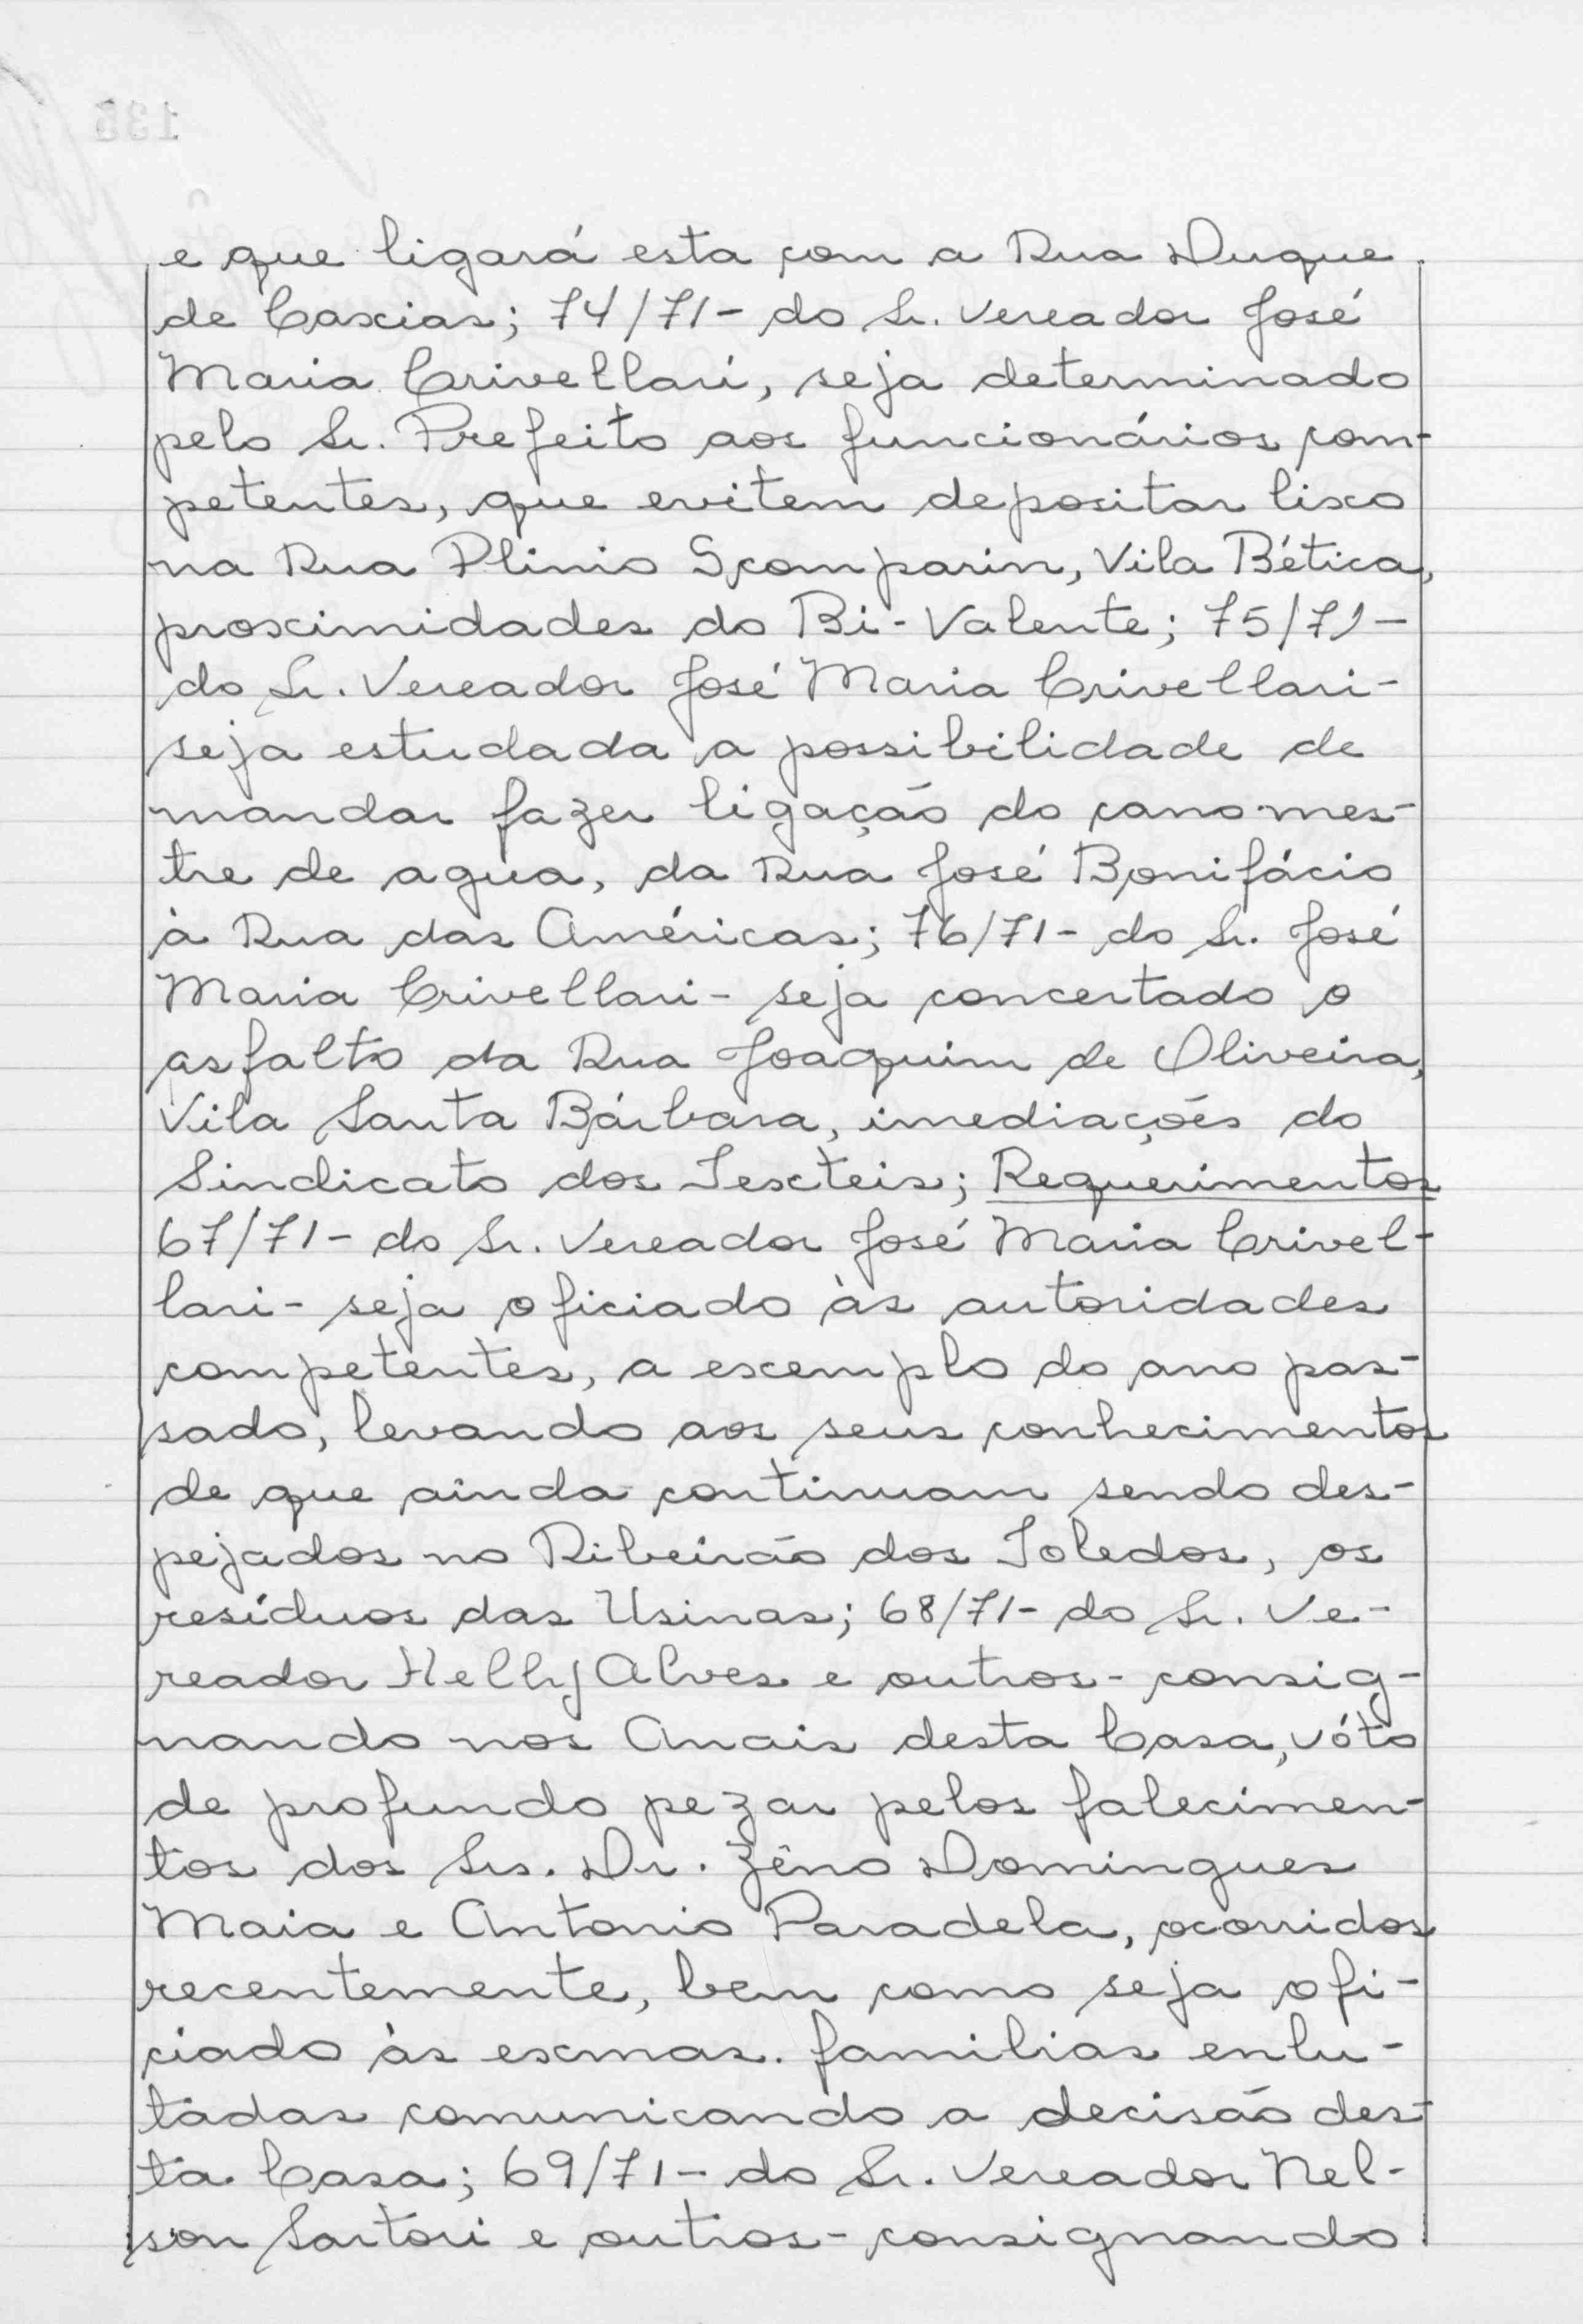 e que ligará esta com a Rua Duque
de Caxias; 74/71- do Sr. Vereador José
Maria Crivellari, seja determinado
pelo Sr. Prefeito aos funcionários com-
petentes, que evitem depositar lixo
na Rua Plinio Scomparin, Vila Bética,
proximidades do Bi-Valente; 75/71-
do Sr. Vereador José Maria Crivellari-
seja estudada a possibilidade de
mandar fazer ligação do cano mes-
tre de agua, da Rua José Bonifácio
à Rua das Américas; 76/71- do Sr. José
Maria Crivellari- seja concertado o
asfalto da Rua Joaquim de Oliveira,
Vila Santa Bárbara, imediações do
Sindicato dos Texteis; Requerimentos
67/71- do Sr. Vereador José Maria Crivel-
lari- seja oficiado às autoridades
competentes, a exemplo do ano pas-
sado, levando aos seus conhecimentos
de que ainda continuam sendo des-
pejados no Ribeirão dos Toledos, os
resíduos das Usinas; 68/71- do Sr. Ve-
reador Helly Alves e outros- consig-
nando nos Anais desta Casa, vóto
de profundo pezar pelos falecimen-
tos dos Srs. Dr. Zêno Domingues
Maia e Antonio Paradela, ocorridos
recentemente, bem como seja ofi-
ciado às exmas. familias enlu-
tadas comunicando a decisão des-
ta Casa; 69/71- do Sr. Vereador Nel-
son Sartori e outros- consignando